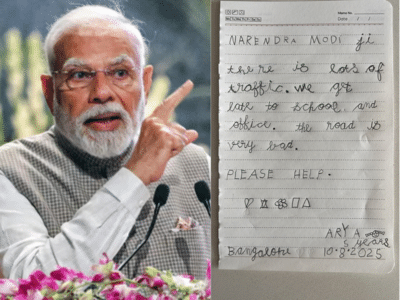 Date
NARENDRA MODI ji
there is lots of
traffic. we get
late to school and
office. the road is
very bad.
PLEASE HELP.
ARYA
5 years
Bangalore 10.8.2025